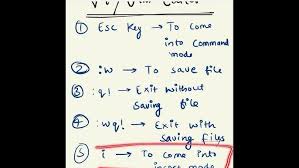 ① Esc Key → To come
into Command
mode
② :w → To save file
③ :q! → Exit without
saving file
④ :wq! → Exit with
saving files
⑤ i → To come into
insert mode